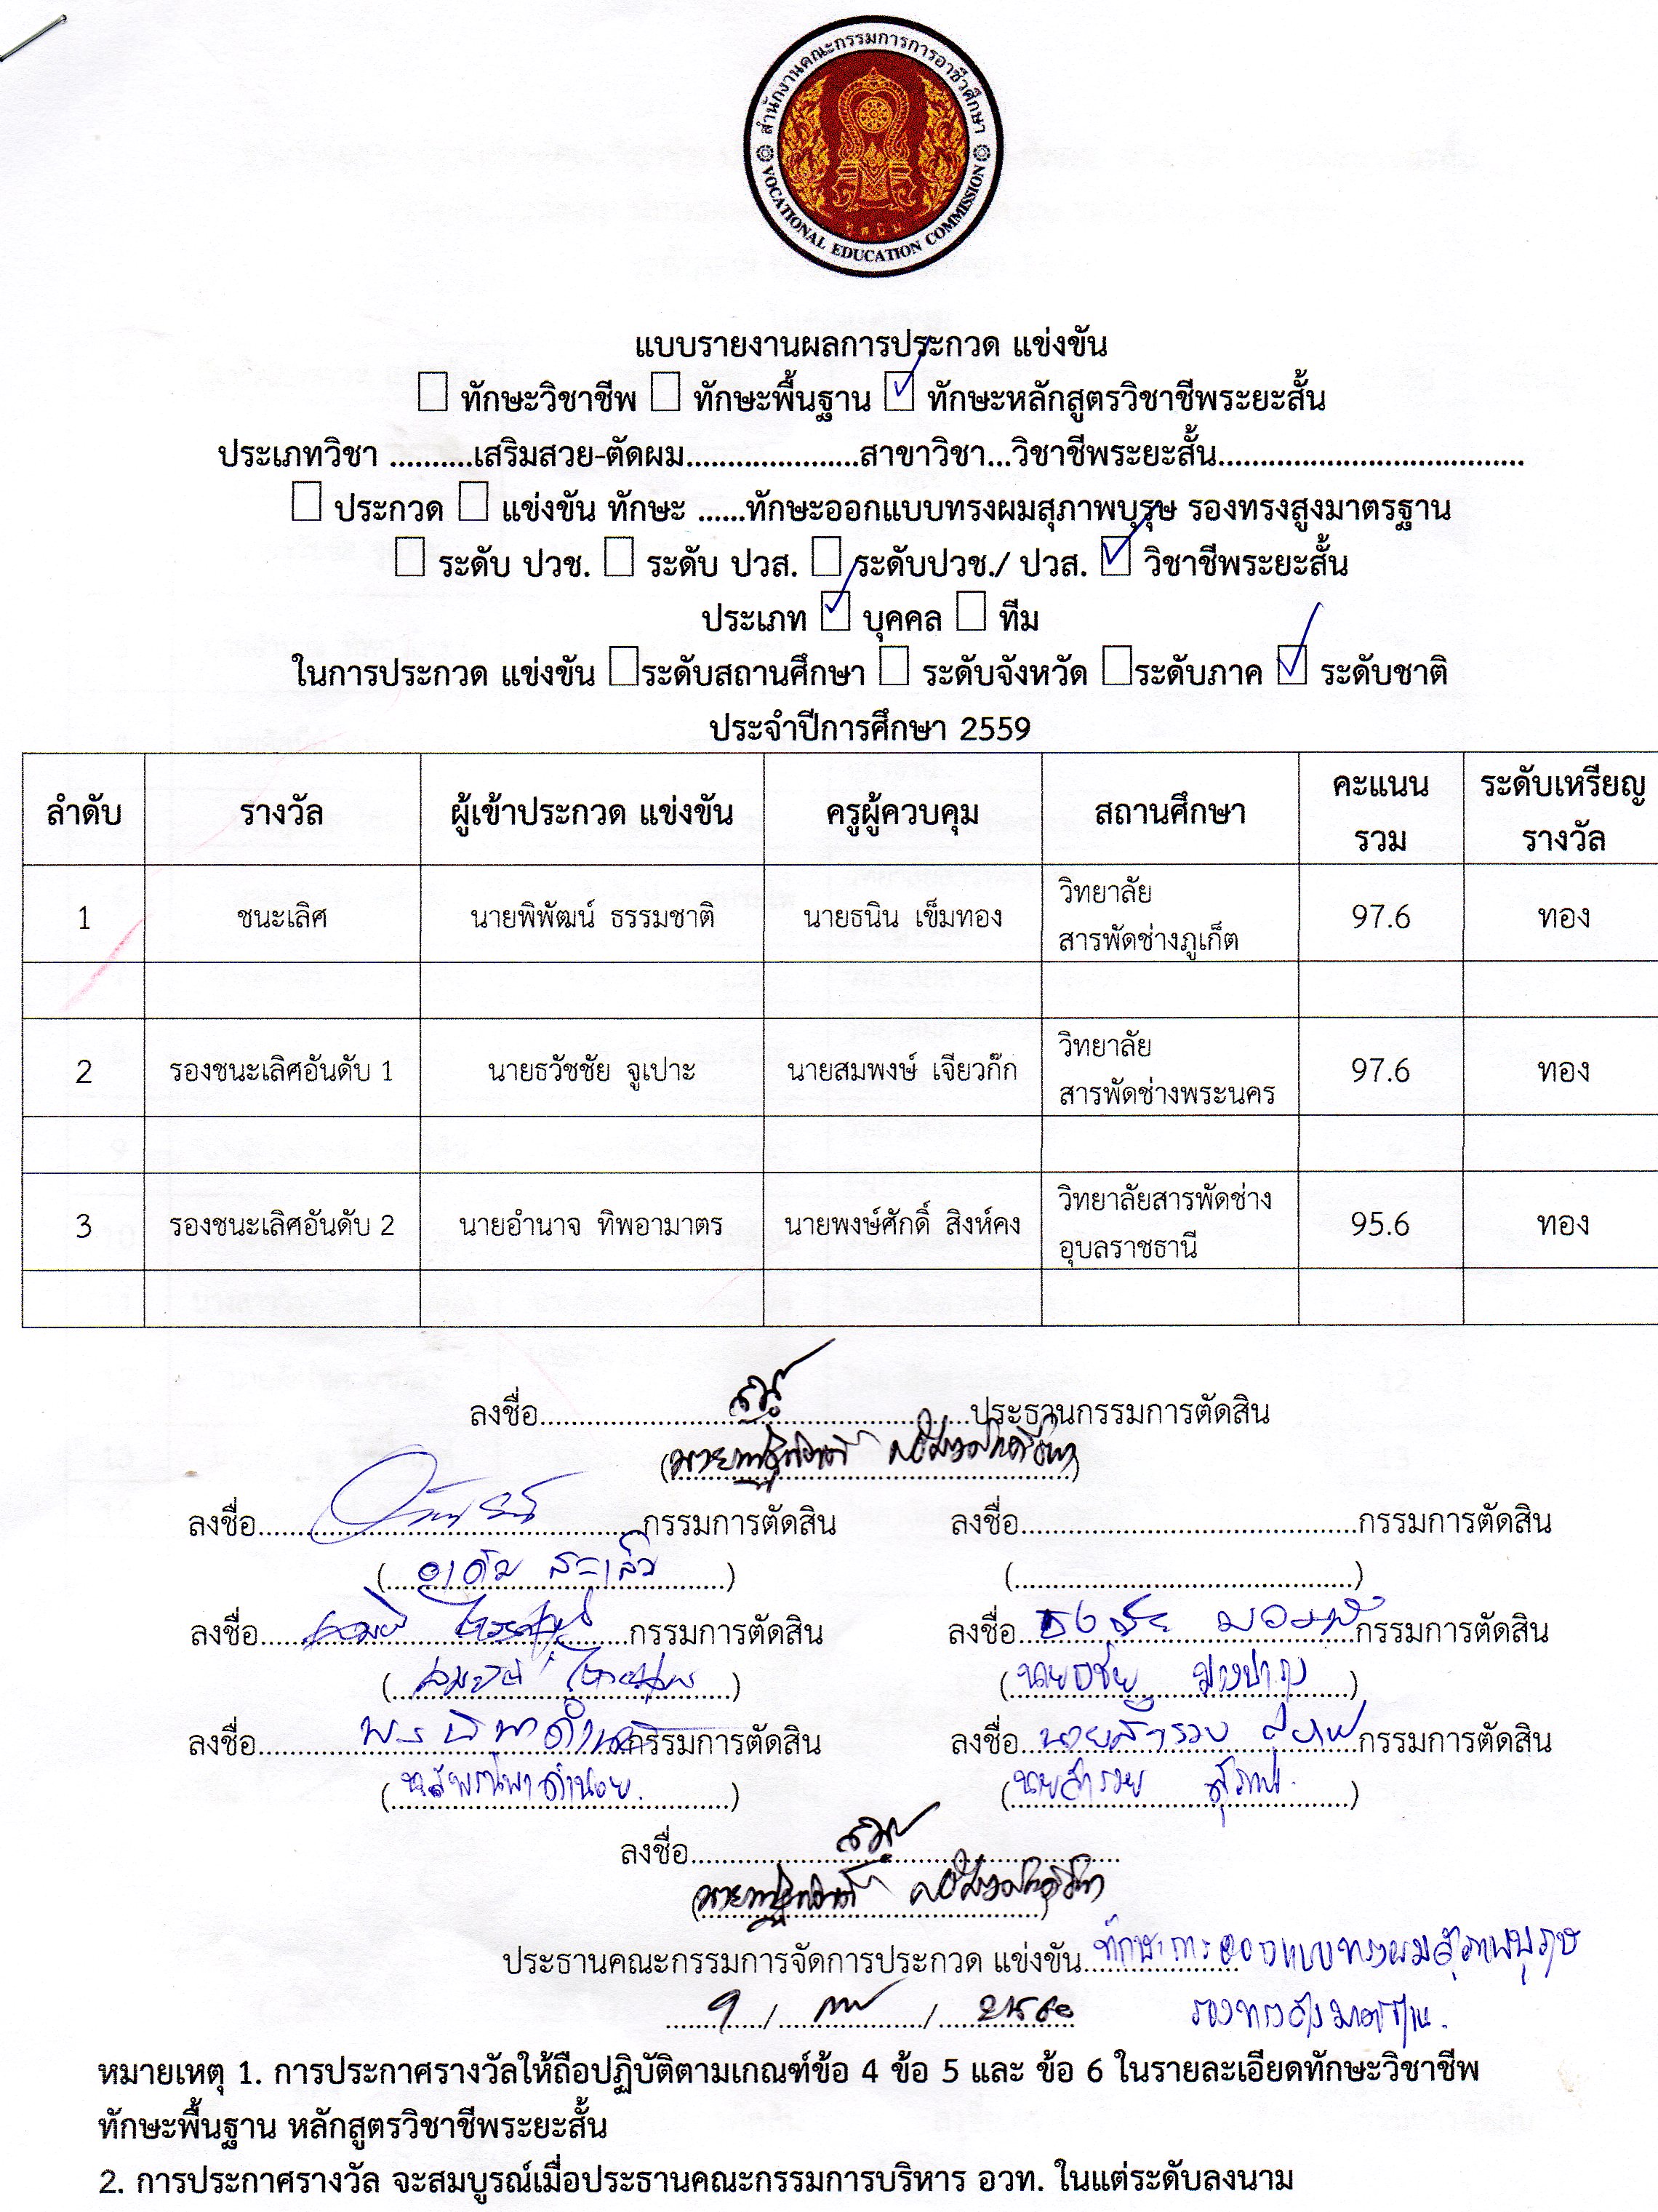 สำนักงานคณะกรรมการการอาชีวศึกษา
VOCATIONAL EDUCATION COMMISSION
แบบรายงานผลการประกวด แข่งขัน
ทักษะวิชาชีพ ทักษะพื้นฐาน ทักษะหลักสูตรวิชาชีพระยะสั้น
ประเภทวิชา ..........เสริมสวย-ตัดผม.....................สาขาวิชา...วิชาชีพระยะสั้น.....................................
ประกวด แข่งขัน ทักษะ ......ทักษะออกแบบทรงผมสุภาพบุรุษ รองทรงสูงมาตรฐาน
ระดับ ปวช. ระดับ ปวส. ระดับปวช./ ปวส. วิชาชีพระยะสั้น
ประเภท บุคคล ทีม
ในการประกวด แข่งขัน ระดับสถานศึกษา ระดับจังหวัด ระดับภาค ระดับชาติ
ประจำปีการศึกษา 2559
ลำดับ รางวัล ผู้เข้าประกวด แข่งขัน ครูผู้ควบคุม สถานศึกษา คะแนนรวม ระดับเหรียญรางวัล
1 ชนะเลิศ นายพิพัฒน์ ธรรมชาติ นายธนิน เข็มทอง วิทยาลัยสารพัดช่างภูเก็ต 97.6 ทอง
2 รองชนะเลิศอันดับ 1 นายธวัชชัย จูเปาะ นายสมพงษ์ เจียวก๊ก วิทยาลัยสารพัดช่างพระนคร 97.6 ทอง
3 รองชนะเลิศอันดับ 2 นายอำนาจ ทิพอามาตร นายพงษ์ศักดิ์ สิงห์คง วิทยาลัยสารพัดช่างอุบลราชธานี 95.6 ทอง
ลงชื่อ..........ประธานกรรมการตัดสิน
ลงชื่อ..........กรรมการตัดสิน ลงชื่อ..........กรรมการตัดสิน
ลงชื่อ..........กรรมการตัดสิน ลงชื่อ..........กรรมการตัดสิน
ลงชื่อ..........กรรมการตัดสิน ลงชื่อ..........กรรมการตัดสิน
ลงชื่อ..........
ประธานคณะกรรมการจัดการประกวด แข่งขัน ทักษะการออกแบบทรงผมสุภาพบุรุษ
รองทรงสูงมาตรฐาน.
หมายเหตุ 1. การประกาศรางวัลให้ถือปฏิบัติตามเกณฑ์ข้อ 4 ข้อ 5 และ ข้อ 6 ในรายละเอียดทักษะวิชาชีพ
ทักษะพื้นฐาน หลักสูตรวิชาชีพระยะสั้น
2. การประกาศรางวัล จะสมบูรณ์เมื่อประธานคณะกรรมการบริหาร อวท. ในแต่ระดับลงนาม